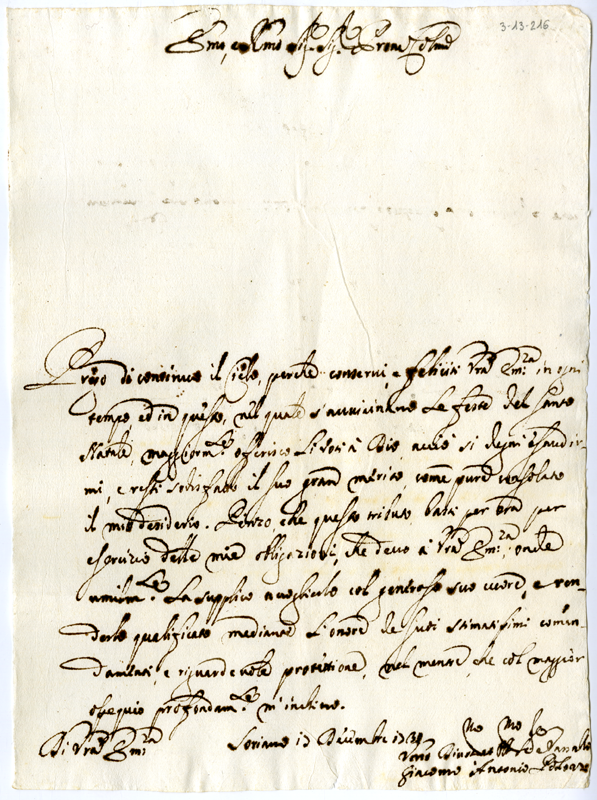 3-13-216
Emo, e Rmo Sig.r Sig.r Prone Colmo
Prego di continuo il Cielo, perche conservi, e feliciti Vra Em:za in ogni
tempo, ed in questo, nel quale s'avvicinano le feste del Santo
Natale, maggiorm.te offerisco li voti à Dio, acciò si degni esaudir-
mi, e resti sodisfatto il suo gran merito, come pure consolato
il mio desiderio. Penzo, che questo tributo basti per ora per
esercizio delle mie obligazioni, che devo à Vra Em:za, onde
umilm.te La supplico accoglierlo col generoso suo cuore, e ren-
derlo qualificato mediante l'onore de suoi stimatissimi coman-
damenti, e riguardevole protettione, nel mentre, che col maggior
ossequio profondam.te m'inchino.
Di Vra Em:za
Soriano 17 Decembre
Giacomo Antonio